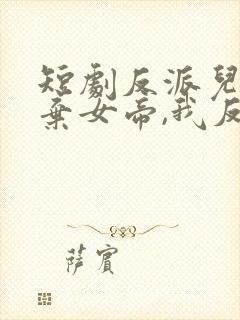 短劇反派兒
棄女帝,我反
薩賓